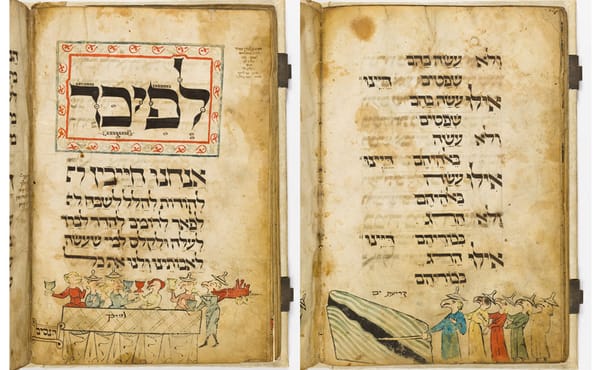 לפיכך
אנחנו חייבין
להודות להלל לשבח
לפאר לרומם להדר לברך
לעלה ולקלס למי שעשה
לאבותינו ולנו את כל
לפיכך
ולא עשה בהם
שפטים דיינו
אילו עשה בהם
שפטים
ולא עשה
באלהיהם דיינו
אילו עשה
באלהיהם
ולא הרג
בכוריהם דיינו
אילו הרג
בכוריהם
קריעת ים